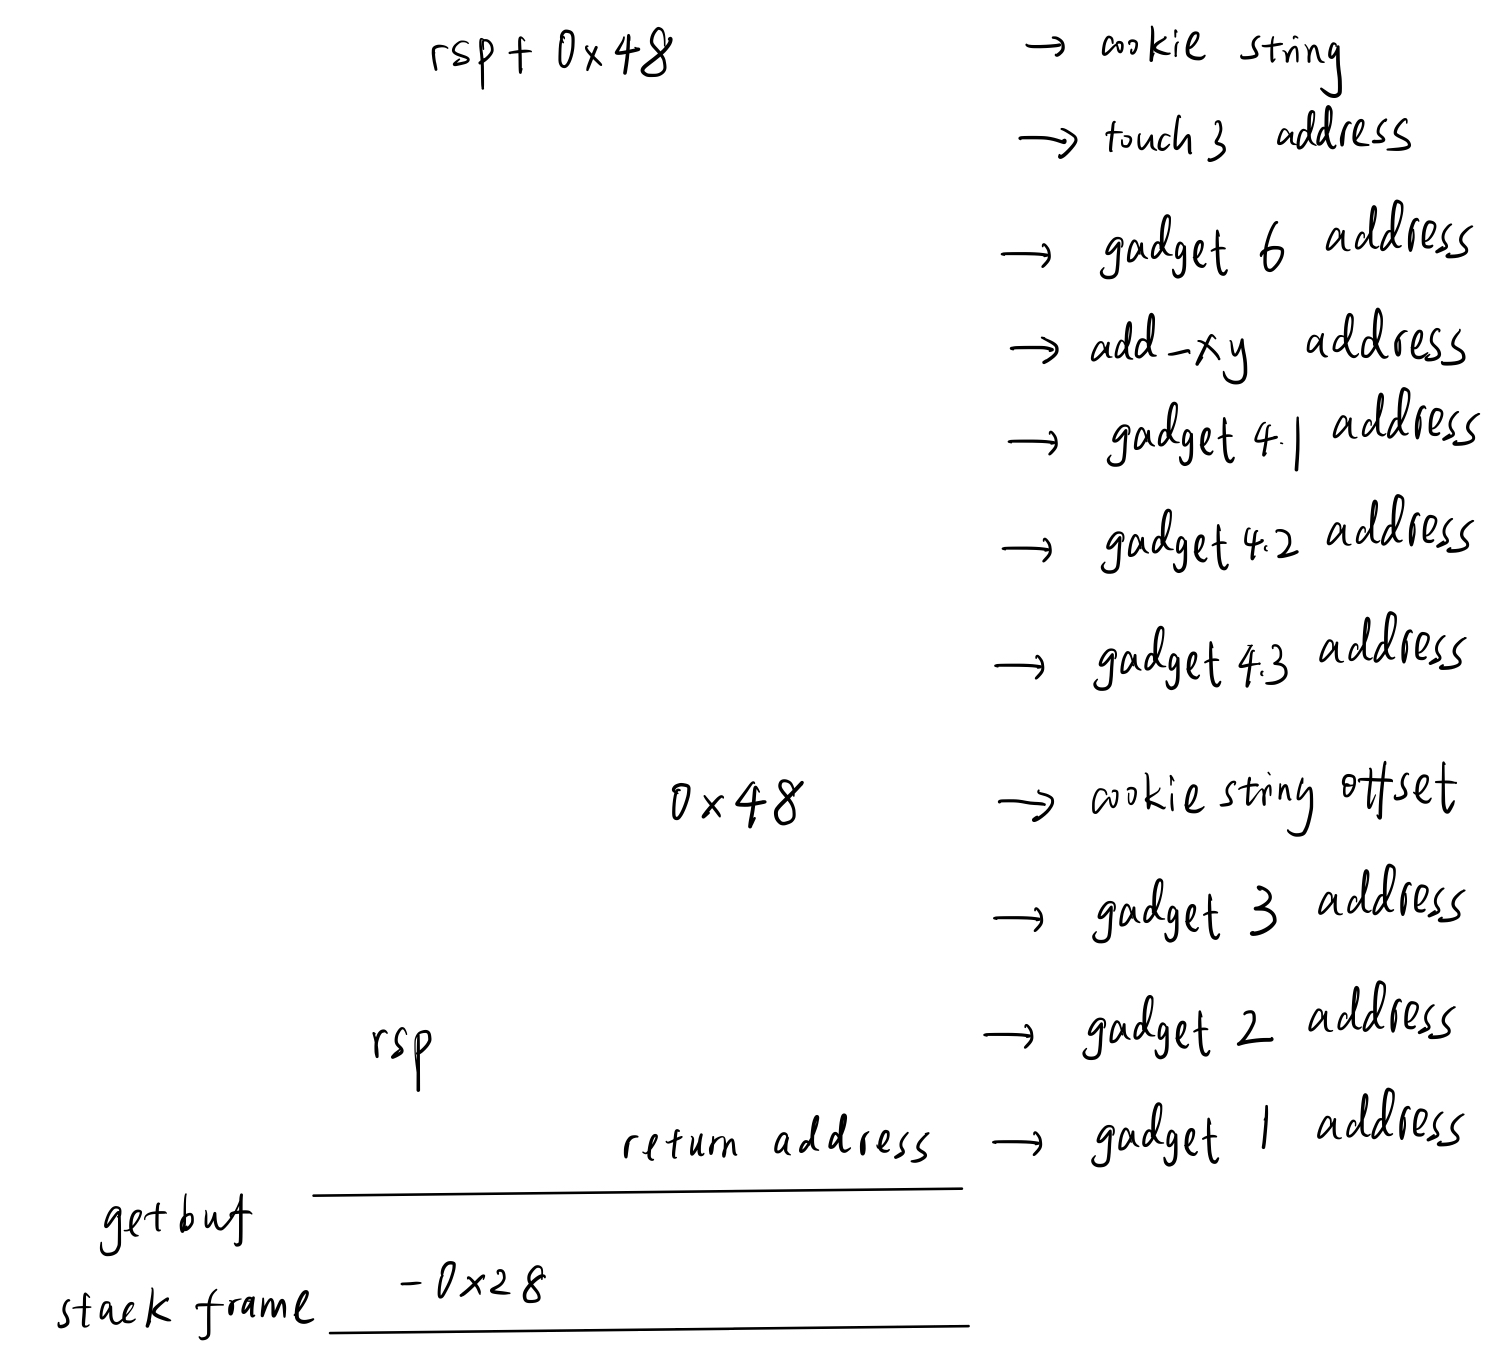 rsp + 0x48 → cookie string
→ touch3 address
→ gadget 6 address
→ add-xy address
→ gadget 4.1 address
→ gadget 4.2 address
→ gadget 4.3 address
0x48 → cookie string offset
→ gadget 3 address
→ gadget 2 address
rsp
return address → gadget 1 address
getbuf
stack frame -0x28